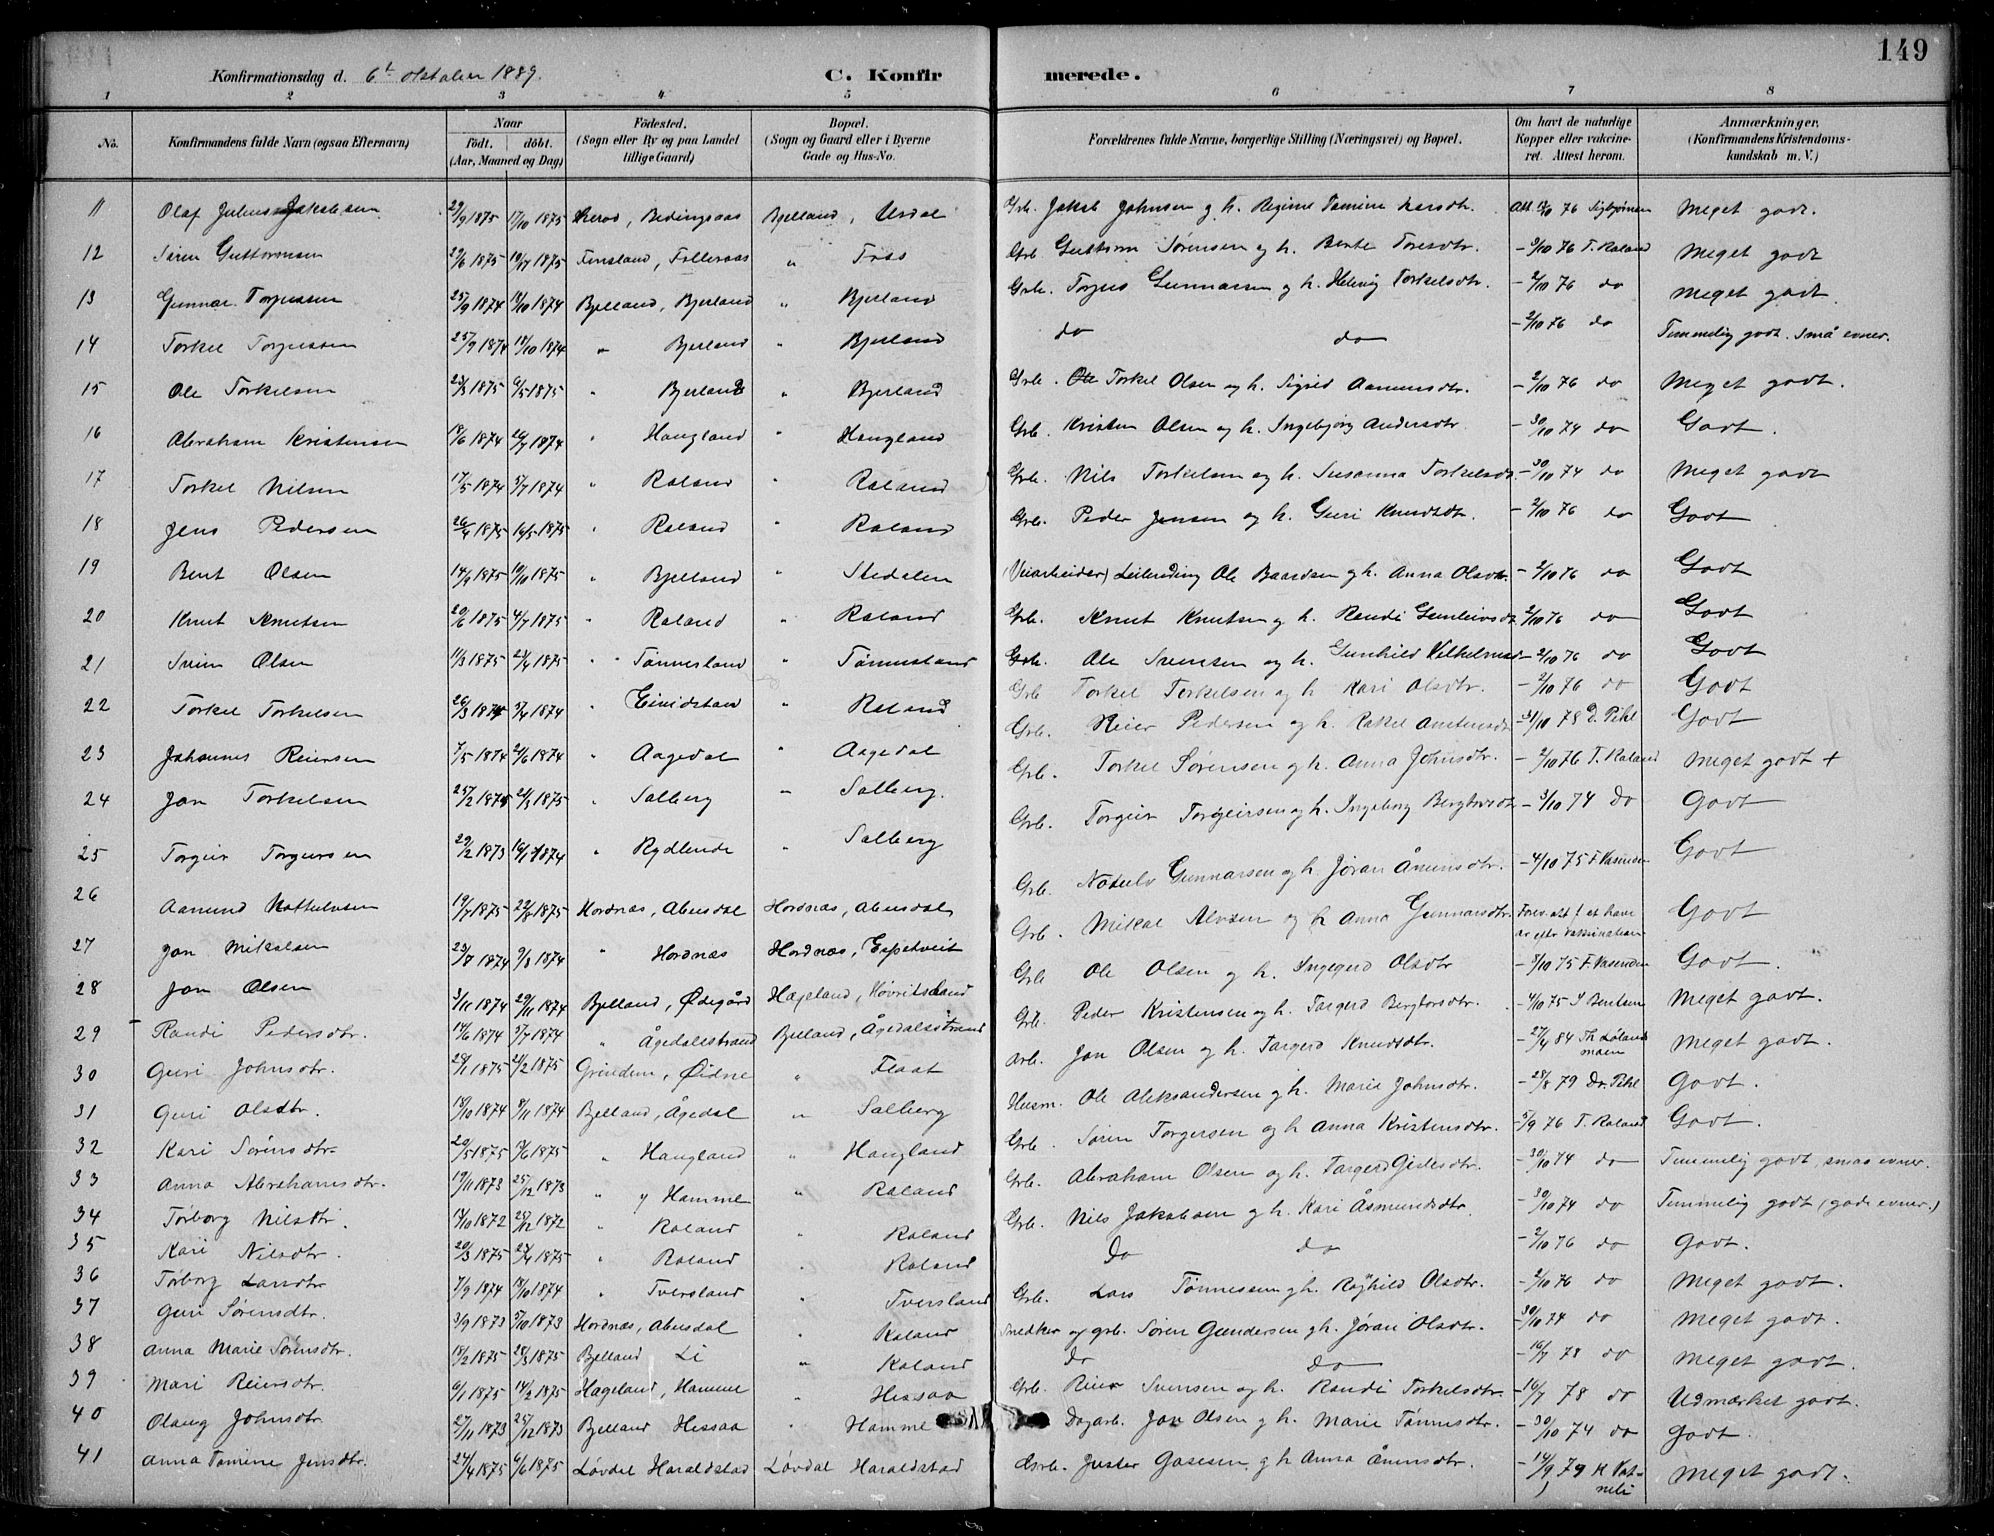 149
Konfirmationsdag d. 6t oktober 1889. C. Konfirmerede.
1 2 3 4 5 6 7 8
No. Konfirmandens fulde Navn (ogsaa Efternavn) Naar Födt. döbt. (Aar, Maaned og Dag) Födested. (Sogn eller By og paa Landet tillige Gaard) Bopæl. (Sogn og Gaard eller i Byerne Gade og Hus-No. Forældrenes fulde Navne, borgerlige Stilling (Næringsvei) og Bopæl. Om havt de naturlige Kopper eller vakcineret. Attest herom. Anmærkninger. (Konfirmandens Kristendomskundskab m. V.)
11 Olaf Julius Jakobsen 29/9 1875 17/10 1875 Bjelland, Usdal Grb. Jakob Johnsen g h. Regine Tomine Meget godt.
12 Søren Guttormsen 29/6 1875 Finsland, " Foss Grb Guttorm Sørensen og h. Berte Toresdtr. - 3/10 76 T. Roland Meget godt
13 Gunnar Torgussen 25/9 1874 18/10 1874 Bjelland, Bjerland " Bjerland Grb. Torgus Gunnarsen g h. Helvig Torkelsdtr. - 2/10 76 do Meget godt.
14 Torkel Torgussen 25/9 1874 18/10 1874 " Bjerland " Bjerland do do - 2/10 76 do Temmelig godt. Små evner.
15 Ole Torkelsen 23/3 1875 6/5 1875 " Bjerland " Bjerland Grb. Torkel Olsen og h. Sigrid Aamundsdtr. - 2/10 76 do Meget godt.
16 Abraham Kristensen 18/6 1874 26/7 1874 " Haugland " Haugland Grb. Kristen Olsen og h. Ingebjørg Andersdtr. - 30/10 74 do Godt.
17 Torkel Nilsen 17/5 1874 5/7 1874 " Roland " Roland Grb. Nils Torkelsen og h. Susanna Torkelsd. - 30/10 74 do Meget godt
18 Jens Pedersen 26/4 1875 16/5 1875 " Roland " Roland Grb. Peder Jensen og h. Guri Knudsdtr. - 2/10 76 do Godt
19 Bent Olsen 14/9 1875 10/10 1875 " Bjelland " Stedalen (Veiarbeider) Leilending Ole Baardsen g h. Anna Olsdtr. - 2/10 76 do Godt
20 Knut Knutsen 20/6 1875 4/7 1875 " Roland " Roland Grb. Knut Knutsen g h. Randi Gunleivsd. 2/10 76 do Godt
21 Svein Olsen 11/3 1875 24/4 1875 " Tønnesland " Tønnesland Grb. Ole Svensen og h. Gunhild Vilhelmsd - 2/10 76 do Godt
22 Torkel Torkelsen 26/3 1874 3/4 1874 " Eividstad " Roland Grb Torkel Torkelsen og h Kari Olsdtr. - 2/10 76 do Godt
23 Johannes Reiersen 7/5 1874 21/6 1874 " Aagedal " Aagedal Grb. Reier Pedersen og h. Rakel - 31/10 78 D. Pihl Godt
24 Jon Torkelsen 25/2 1875 21/3 1875 " Solberg " Solberg. Grb. Torkel Sørensen g h. Anna Johnsdtr. - 2/10 76 T. Roland Meget godt +
25 Torgeir Torgeirsen 29/2 1873 " Rydlende " Solberg Grb. Torgeir Torgeirsen og h. Ingeborg - 3/10 74 do Godt
26 Aamund Nottulvsen 19/7 1875 22/8 1875 Hordnæs, Abusdal Hordnæs, Abusdal Grb. Notulv Gunnarsen og h. Jøran Åmundsdtr. - 4/10 75 F. Vasenden Godt
27 Jon Mikalsen 23/7 1874 9/8 1874 " Hordnæs Hordnæs, Espetveit Grb. Mikal Alvsen og h Anna Gunnarsdtr. Forev. att f at have ar efter vaksination Godt
28 Jon Olsen 3/11 1874 29/11 1874 Bjelland, Ødegård Hægeland, Grb Ole Olsen g h. Ingegerd Olsdtr - 8/10 75 F. Vasenden Godt.
29 Randi Pedersdtr. 14/6 1874 5/7 1874 " Ågedalstrand Bjelland, Ågedalsstrand Grb. Peder Kristensen og h. Targerd Bergtorsdtr. - 4/10 75 S Bentsen Meget godt.
30 Guri Johnsdtr. 28/1 1875 21/2 1875 Grindem, Øidne " Flaat Arb. Jon Olsen og h. Targerd Knudsdtr. - 27/4 84 Th Løland moen Meget godt.
31 Guri Olsdtr. 18/10 1874 8/11 1874 Bjelland, Ågedal " Solberg Husm. Ole Aleksandersen g h. Marie Johnsdtr. - 28/8 79 Dr. Pihl Godt.
32 Kari Sørensdtr. 20/5 1875 " Haugland " Haugland Grb. Søren Torgersen og h Anna Kristensdtr. - 5/9 76 T. Roland Godt.
33 Anna Abrahamsdtr. 19/11 1873 25/12 1873 " y Hamme " Roland Grb. Abraham Olsen og h. Targerd Gislesdtr. - 30/10 74 do Temmelig godt, smaa evner.
34 Torborg Nilsdtr. 14/10 1872 28/12 1872 " Roland " Roland Grb. Nils Jakobsen g h. Kari Åsmundsdtr. - 30/10 74 do Temmelig godt (gode evner.)
35 Kari Nilsdtr. 20/3 1875 24/4 1875 " Roland " Roland Do do - 2/10 76 do Godt.
36 Torborg Larsdtr 7/9 1874 18/10 1874 " Tversland " Tversland Grb. Lars Tønnessen g h. Raghild Olsdtr. - 2/10 76 do Meget godt.
37 Guri Sørensdtr. 3/9 1873 5/10 1873 Hordnæs, Abusdal " Roland Snedker og grb. Søren Gundersen g h. Jøran Olsdtr. - 30/10 74 do Meget godt.
38 Anna Marie Sørensdtr. 18/2 1875 28/3 1875 Bjelland Li " Roland do do - 16/7 78 do Meget godt.
39 Mari Reiersdtr. 6/1 1875 14/2 1875 Hægeland, Hamme " Hessaa Grb. Reier Svensen og h. Randi Torkelsdtr. - 16/7 78 do Udmærket godt.
40 Olaug Johnsdtr 27/11 1873 25/12 1873 Bjelland Hessaa " Hamme Dagarb. Jon Olsen g h. Marie Tønnesdtr. - 30/10 74 do Godt.
41 Anna Tomine Jensdtr. 24/4 1875 6/6 1875 Løvdal Haraldstad Løvdal Haraldstad Grb. Gasesen g h Anna Ånensdtr. - 14/9 79 K Vatneli Meget godt.